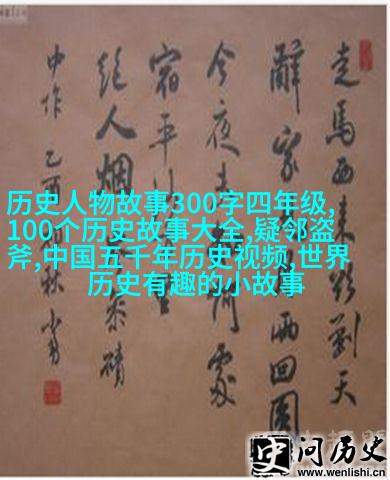 走馬西来欲到天
辭家見月两回圓
今夜不知何處
宿平沙
絕人烟岑参磧
中作乙酉秋
历史人物故事300字四年级,
100个历史故事大全,疑邻盗
斧,中国五千年历史视频,世界
历史有趣的小故事
史问历史
www.wenlishi.cn